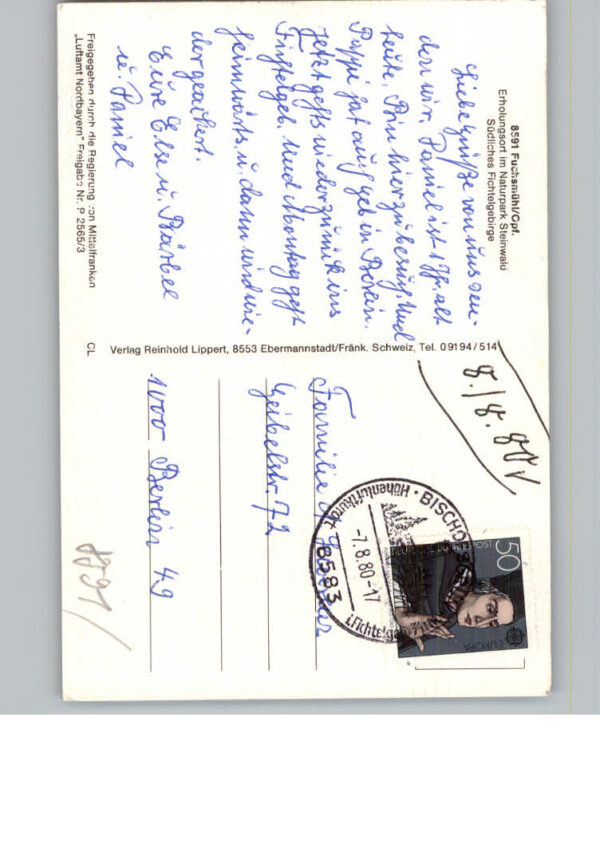 8591 Fuchsmühl/Opf.
Erholungsort im Naturpark Steinwald
Südliches Fichtelgebirge
Liebe Grüße von uns sen-
den wir. Daniel ist 1 Jh. alt
heute. Bin hier zu besuch. Und
Pappi hat aug geb in Berlin.
Jetzt gehts wieder zurück ins
Fichtelgeb. Und Montag geht
heimwärts u. dann wird wie-
der geackert.
Eure Else u. Bärbel
u. Daniel
Freigegeben durch die Regierung von Mittelfranken
„Luftamt Nordbayern" Freigabe Nr. P 2565/3
CL Verlag Reinhold Lippert, 8553 Ebermannstadt/Fränk. Schweiz, Tel. 09194/514
8./8.80
Familie
Geibelstr. 72
1000 Berlin 49
8583 BISCHO
Höhenluftkurort
-7.8.80-17
(Fichtelge
50
EUROPA